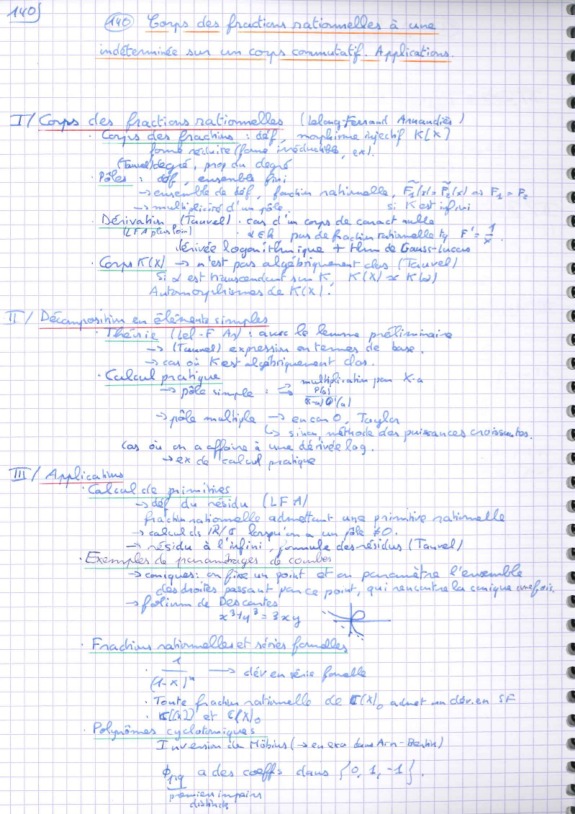 140)
(140) Corps des fractions rationnelles à une
indéterminée sur un corps commutatif. Applications.
I/ Corps des fractions rationnelles (Lelong-Ferrand Arnaudiès)
· Corps des fractions : déf, morphisme injectif K[X]
forme réduite (forme irréductible, ex).
(Tauvel) degré, prop du degré
· Pôles : déf, ensemble fini
→ ensemble de déf, fonction rationnelle, F̃₁(x) = F̃₂(x) ⇒ F₁ = F₂
→ multiplicité d'un pôle. si K est infini
· Dérivation (Tauvel) · cas d'un corps de caract nulle
(LFA plus loin) pas de fraction rationnelle tq F' = 1/X.
dérivée logarithmique + thm de Gauss-Lucas
· Corps K(X) → n'est pas algébriquement clos (Tauvel)
Si α est transcendant sur K, K(X) ≃ K(α)
Automorphismes de K(X).
II/ Décomposition en éléments simples
· Théorie (Lel-F Ar) : avec le lemme préliminaire
→ (Tauvel) expression en termes de base.
→ cas où K est algébriquement clos.
· Calcul pratique
→ pôle simple : multiplication par X-a
→ pôle multiple → en 0, Taylor
↳ sinon méthode des puissances croissantes.
Cas où on a affaire à une dérivée log.
→ ex de calcul pratique
III/ Applications
· Calcul de primitives
→ déf du résidu (LFA)
fraction rationnelle admettant une primitive rationnelle
→ calcul ds IR/C lorsqu'on a un pôle ≠0.
→ résidu à l'infini : formule des résidus (Tauvel)
· Exemples de paramétrages de courbes
→ coniques : on fixe un point et on paramètre l'ensemble
des droites passant par ce point, qui rencontre la conique une fois.
→ folium de Descartes
x³+y³ = 3xy
· Fractions rationnelles et séries formelles
· 1/(1-X)ⁿ → dév en série formelle
· Toute fraction rationnelle de C(X)₀ admet un dév. en SF
· C((X)) et C(X)₀
· Polynômes cyclotomiques
Inversion de Möbius (→ en exo dans Arn-Bertin)
ϕ_pq a des coeffs dans {0, 1, -1}.
premiers impairs
distincts